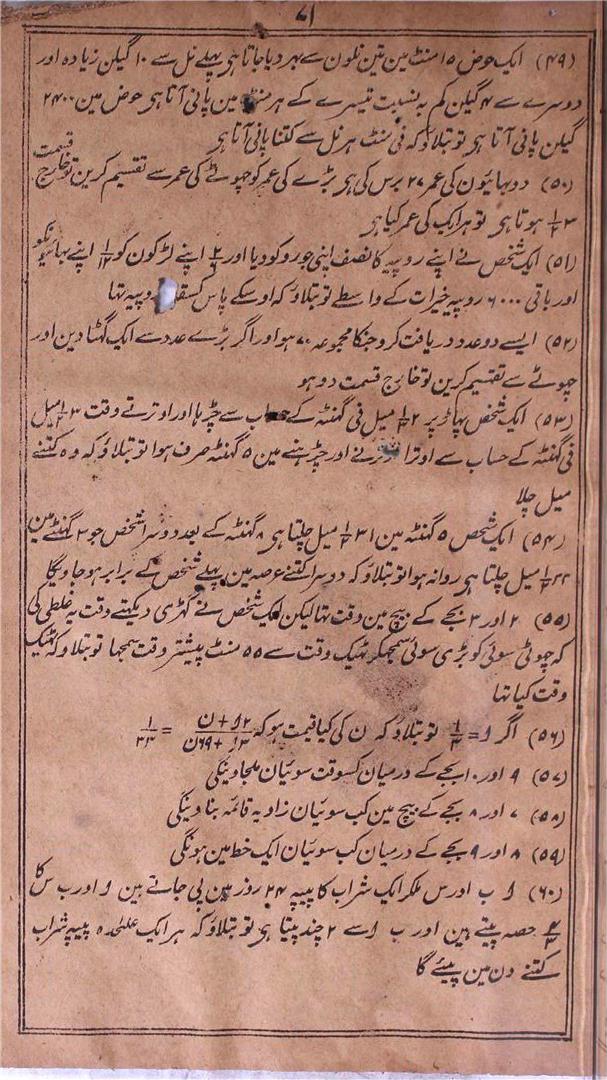 ۷۱
(۴۹) ایک حوض ۱۵ منٹ مین تین نلون سے بہر دیا جاتا ہی پہلے نل سے ۱۰ گیلن زیادہ اور
دوسرے سے ۴ گیلن کم بہ نسبت تیسرے کے ہر منٹ مین پانی آتا ہی حوض مین ۲۴۰۰
گیلن پانی آتا ہی تو بتلاؤ کہ فی منٹ ہر نل سے کتنا پانی آتا ہی
(۵۰) دو بہائیون کی عمر ۲۷ برس کی ہی بڑے کی عمر کو چہوٹے کی عمر سے تقسیم کرین تو خارج قسمت
۳ ۱/۲ ہوتا ہی تو ہر ایک کی عمر کیا ہی
(۵۱) ایک شخص نے اپنے روپیہ کا نصف اپنی جورو کو دیا اور اپنے لڑکون کو اپنے بہائیونکو
اور باقی ۶۰۰۰ روپیہ خیرات کے واسطے تو بتلاؤ کہ اوسکے پاس کسقدر روپیہ تہا
(۵۲) ایسے دو عدد دریافت کرو جنکا مجموعہ ۷۰ ہو اور اگر بڑے عدد سے ایک گہٹا دین اور
چہوٹے سے تقسیم کرین تو خارج قسمت دو ہو
(۵۳) ایک شخص پہاڑ پر ۲ ۱/۲ میل فی گہنٹہ کے حساب سے چڑہا اور اوترتے وقت ۳ ۱/۲ میل
فی گہنٹہ کے حساب سے اوترا اوترنے اور چڑہنے مین ۵ گہنٹہ صرف ہوا تو بتلاؤ کہ وہ کتنے
میل چلا
(۵۴) ایک شخص ۵ گہنٹہ مین ۳۱ ۱/۲ میل چلتا ہی ۸ گہنٹہ کے بعد دوسرا شخص جو ۳ گہنٹے مین
۲۲ ۱/۲ میل چلتا ہی روانہ ہوا تو بتلاؤ کہ دوسرا کتنے عرصہ مین پہلے شخص کے برابر ہو جاویگا
(۵۵) ۲ اور ۳ بجے کے بیچ مین وقت تہا لیکن ایک شخص نے گہڑی دیکہتے وقت یہ غلطی کی
کہ چہوٹی سوئی کو بڑی سوئی سمجہکر ٹہیک وقت سے ۵۵ منٹ پیشتر وقت سمجہا تو بتلاؤ کہ ٹہیک
وقت کیا تہا
(۵۶) اگر ا = ۱/۲ تو بتلاؤ کہ ن کی کیا قیمت ہو کہ ن + ۱۲ / ن۶۹ + ۱۳ = ۱/۳۳
(۵۷) ۹ اور ۱۰ بجے کے درمیان کسوقت سوئیان ملجاوینگی
(۵۸) ۷ اور ۸ بجے کے بیچ مین کب سوئیان زاویہ قائمہ بناوینگی
(۵۹) ۸ اور ۹ بجے کے درمیان کب سوئیان ایک خط مین ہونگی
(۶۰) ا ب اور س ملکر ایک شراب کا پیپہ ۲۴ روز مین پی جاتے ہین ا اور ب س کا
۴/۳ حصہ پیتے ہین اور ب ا سے ۲ چند پیتا ہی تو بتلاؤ کہ ہر ایک علٰحدہ پیپہ شراب
کتنے دن مین پیئے گا